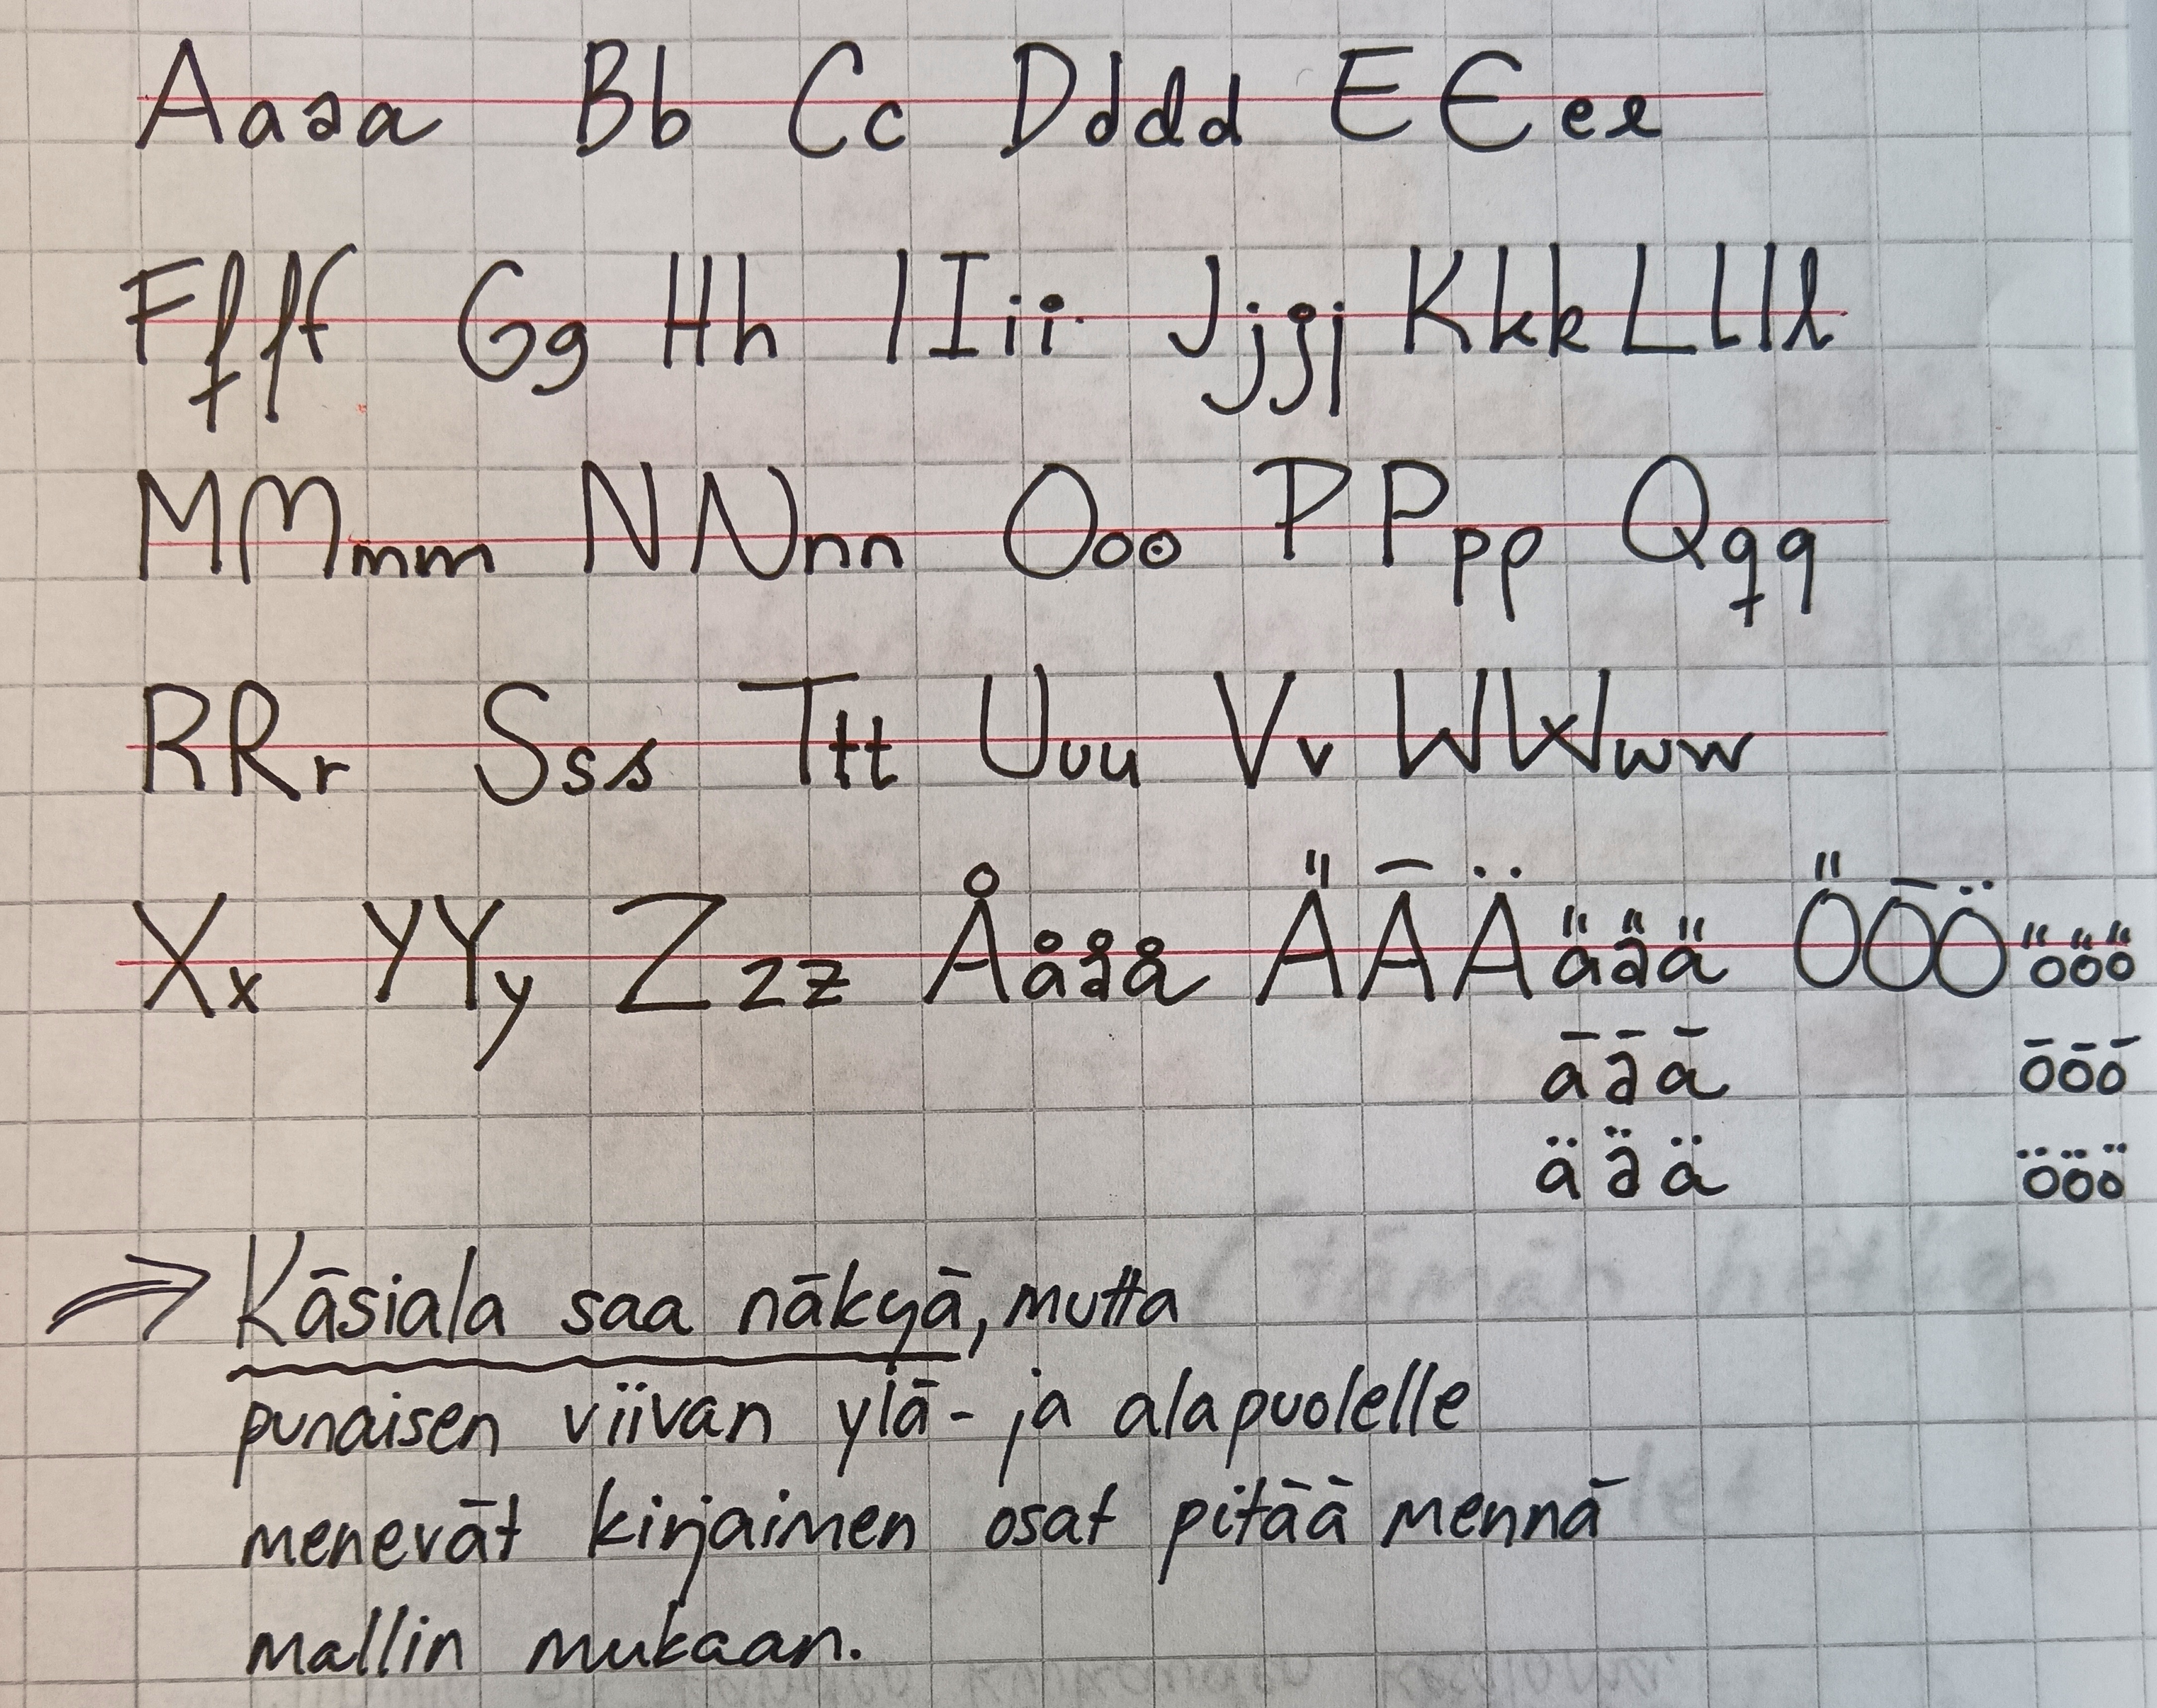 Aaaa Bb Cc Dddd EEeee
Ffff Gg Hh IIii Jjjj Kkk Llll
MMmm NNnn Ooo PPpp Qqq
RRr Sss Ttt Uuu Vv WWww
Xx YYy Zzz Åååå ÄĀÄäää ÖŌÖööö
āāā ōōō
äää ööö
Kāsiala saa nākyā, mutta
punaisen viivan ylā- ja alapuolelle
menevāt kirjaimen osat pitāā mennā
mallin mukaan.